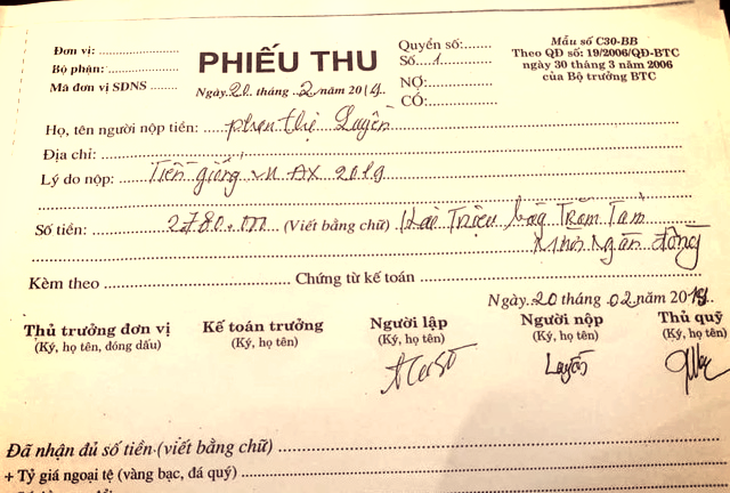 Đơn vị: ..............
Bộ phận: ..............
Mã đơn vị SDNS ........
PHIẾU THU
Ngày 20 tháng 2 năm 2019
Quyển số: .......
Số 1
NỢ: ..............
CÓ: ..............
Mẫu số C30-BB
Theo QĐ số: 19/2006/QĐ-BTC
ngày 30 tháng 3 năm 2006
của Bộ trưởng BTC
Họ, tên người nộp tiền: phan thị Luyến
Địa chỉ: ..............
Lý do nộp: Tiền giống vụ ĐX 2019
Số tiền: 2780.000 (Viết bằng chữ) Hai Triệu bảy Trăm Tám
Mươi Ngàn đồng
Kèm theo .............. Chứng từ kế toán ..............
Ngày 20 tháng 02 năm 2019
Thủ trưởng đơn vị Kế toán trưởng Người lập Người nộp Thủ quỹ
(Ký, họ tên, đóng dấu) (Ký, họ tên) (Ký, họ tên) (Ký, họ tên) (Ký, họ tên)
Luyến
Đã nhận đủ số tiền (viết bằng chữ) ..............
+ Tỷ giá ngoại tệ (vàng bạc, đá quý) ..............